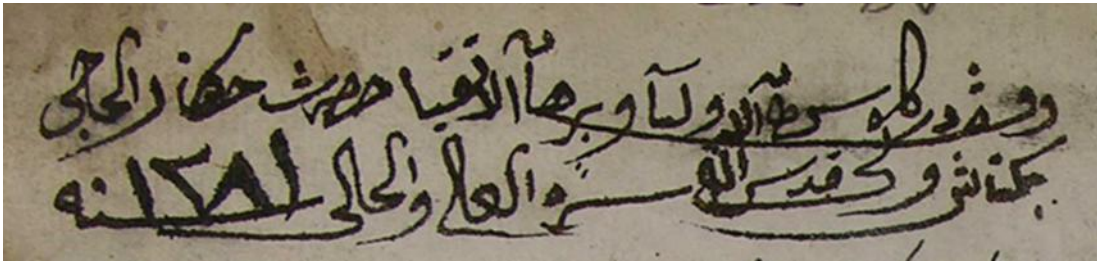 وقف درگاه سلطان الاوليا وبرهان الاتقيا حضرت خنكار الحاجی
بكتاش ولی قدس الله سره العالی والحالی سنه ١٢٨١